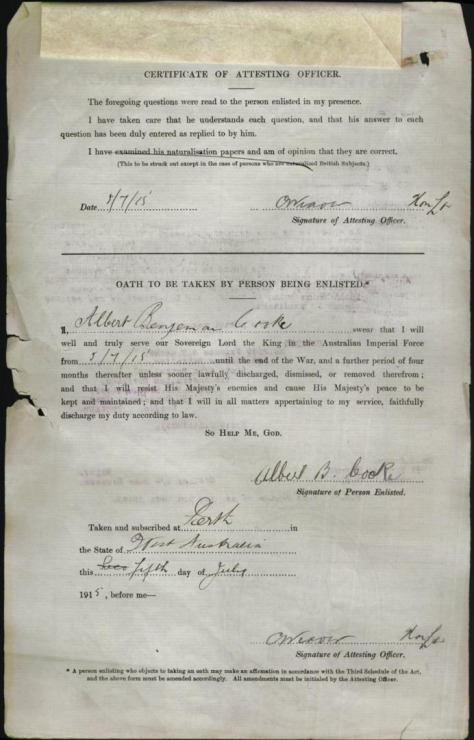 CERTIFICATE OF ATTESTING OFFICER.
The foregoing questions were read to the person enlisted in my presence.
I have taken care that he understands each question, and that his answer to each
question has been duly entered as replied to by him.
I have examined his naturalisation papers and am of opinion that they are correct.
(This to be struck out except in the case of persons who are naturalised British Subjects.)
Date 5/7/15
Signature of Attesting Officer.
OATH TO BE TAKEN BY PERSON BEING ENLISTED.*
I, Albert Benjeman Cooke swear that I will
well and truly serve our Sovereign Lord the King in the Australian Imperial Force
from 5/7/15 until the end of the War, and a further period of four
months thereafter unless sooner lawfully discharged, dismissed, or removed therefrom;
and that I will resist His Majesty's enemies and cause His Majesty's peace to be
kept and maintained; and that I will in all matters appertaining to my service, faithfully
discharge my duty according to law.
SO HELP ME, GOD.
Albert B. Cooke
Signature of Person Enlisted.
Taken and subscribed at Perth in
the State of West Australia
this fifth day of July
1915, before me—
Signature of Attesting Officer.
* A person enlisting who objects to taking an oath may make an affirmation in accordance with the Third Schedule of the Act,
and the above form must be amended accordingly. All amendments must be initialed by the Attesting Officer.